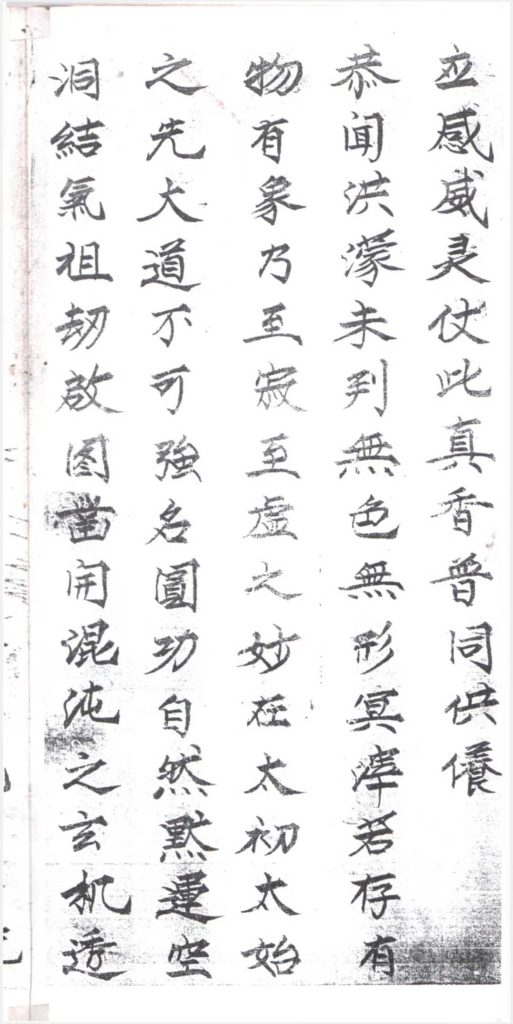 立感威灵仗此真香普同供養
恭聞洪濛未判無色無形冥滓若存有
物有象乃至寂至虛之妙在太初太始
之先大道不可強名圓功自然黙運空
洞結氣祖劫啟图凿開混沌之玄机透